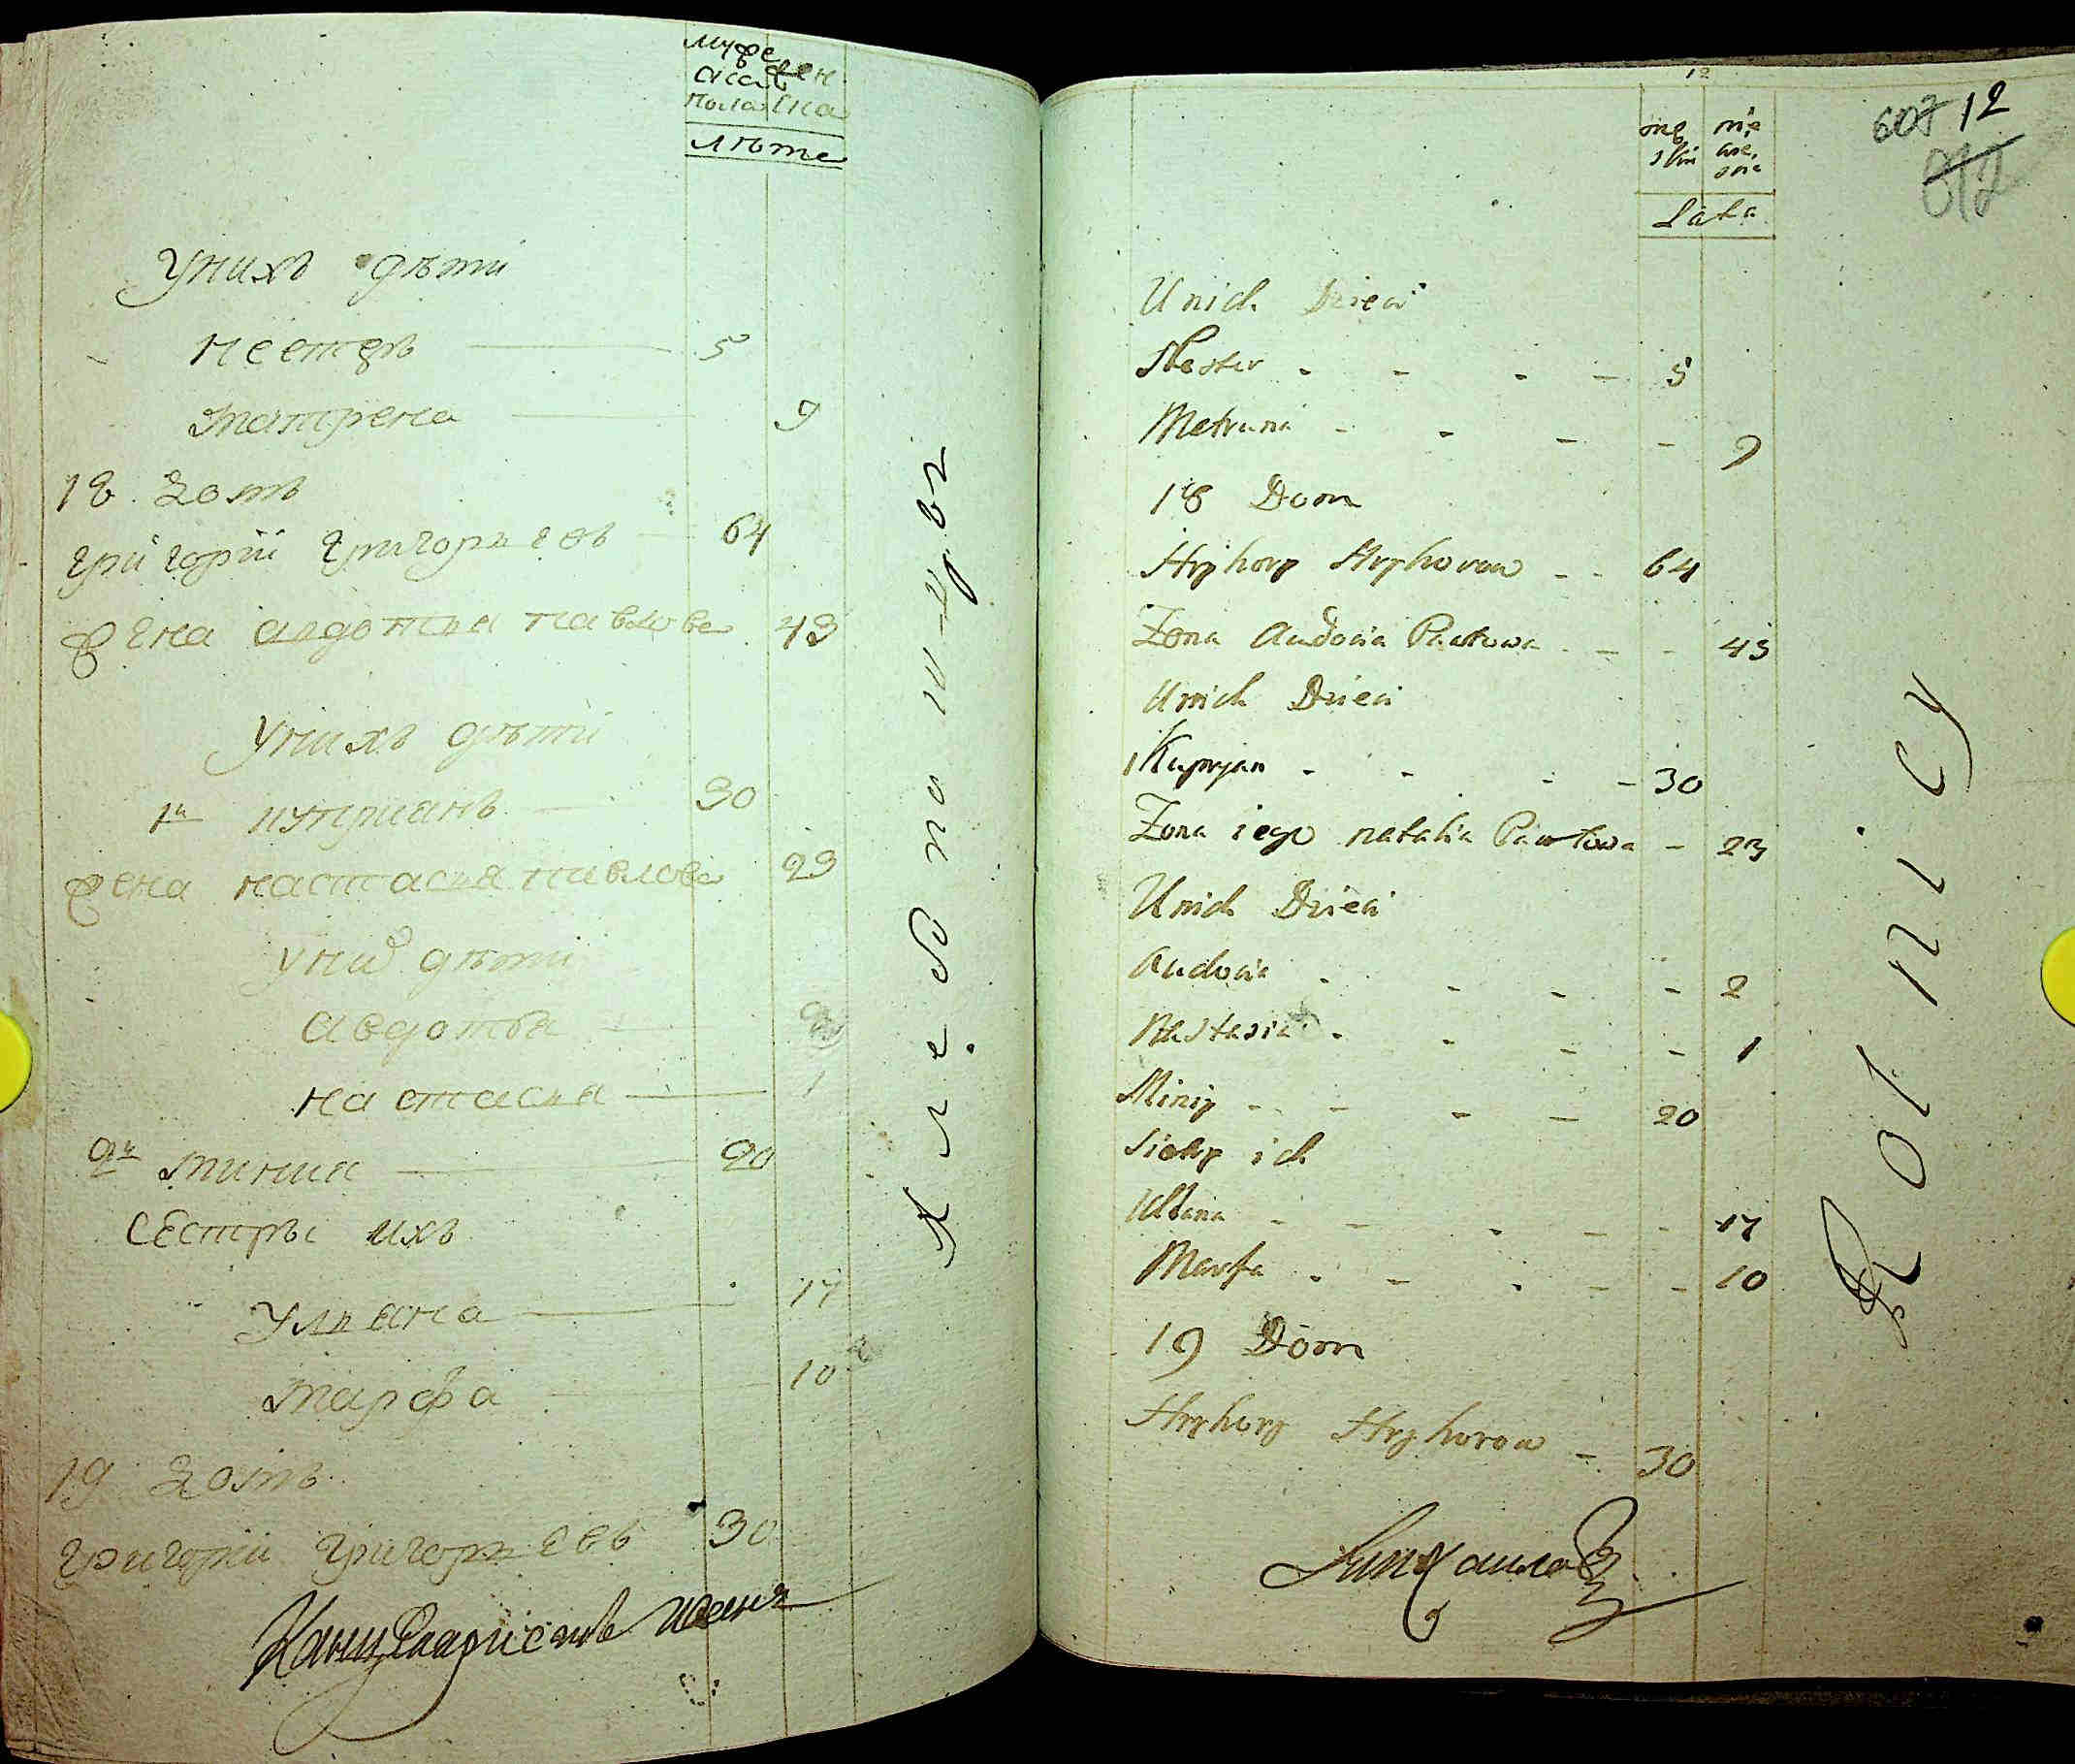 муже ска пола
жен ска
лѣте
У нихъ дѣти
Нестеръ 5
Матрена 9
18 Домъ
Григорій Григорьевъ 64
Жена Авдотья Павлова 43
У нихъ дѣти
1й Куприанъ 30
Жена Настасья Павлова 23
У них дѣти
Авдотья 2
Настасья 1
2й Миния 20
Сестры ихъ
Ульяна 17
Марфа 10
19 Домъ
Григорій Григорьевъ 30
Канцеляристъ Иванъ
Хлебпо
12
607 12
612
Lata
U nich Dzieci
Nester - - - - 5
Metruna - - - - 9
18 Dom
Hryhory Hryhorow - - 64
Żona Audocia Pawłowa - - - 43
U nich Dzieci
1 Kupryan - - - - 30
Żona iego natalia Pawłowa - 23
U nich Dzieci
Audocia - - - - 2
Nastasia - - - - 1
Miniy - - - - 20
Siostry ich
Ullana - - - - - 17
Marfa - - - - - 10
19 Dom
Hryhory Hryhorow - 30
Rolnicy